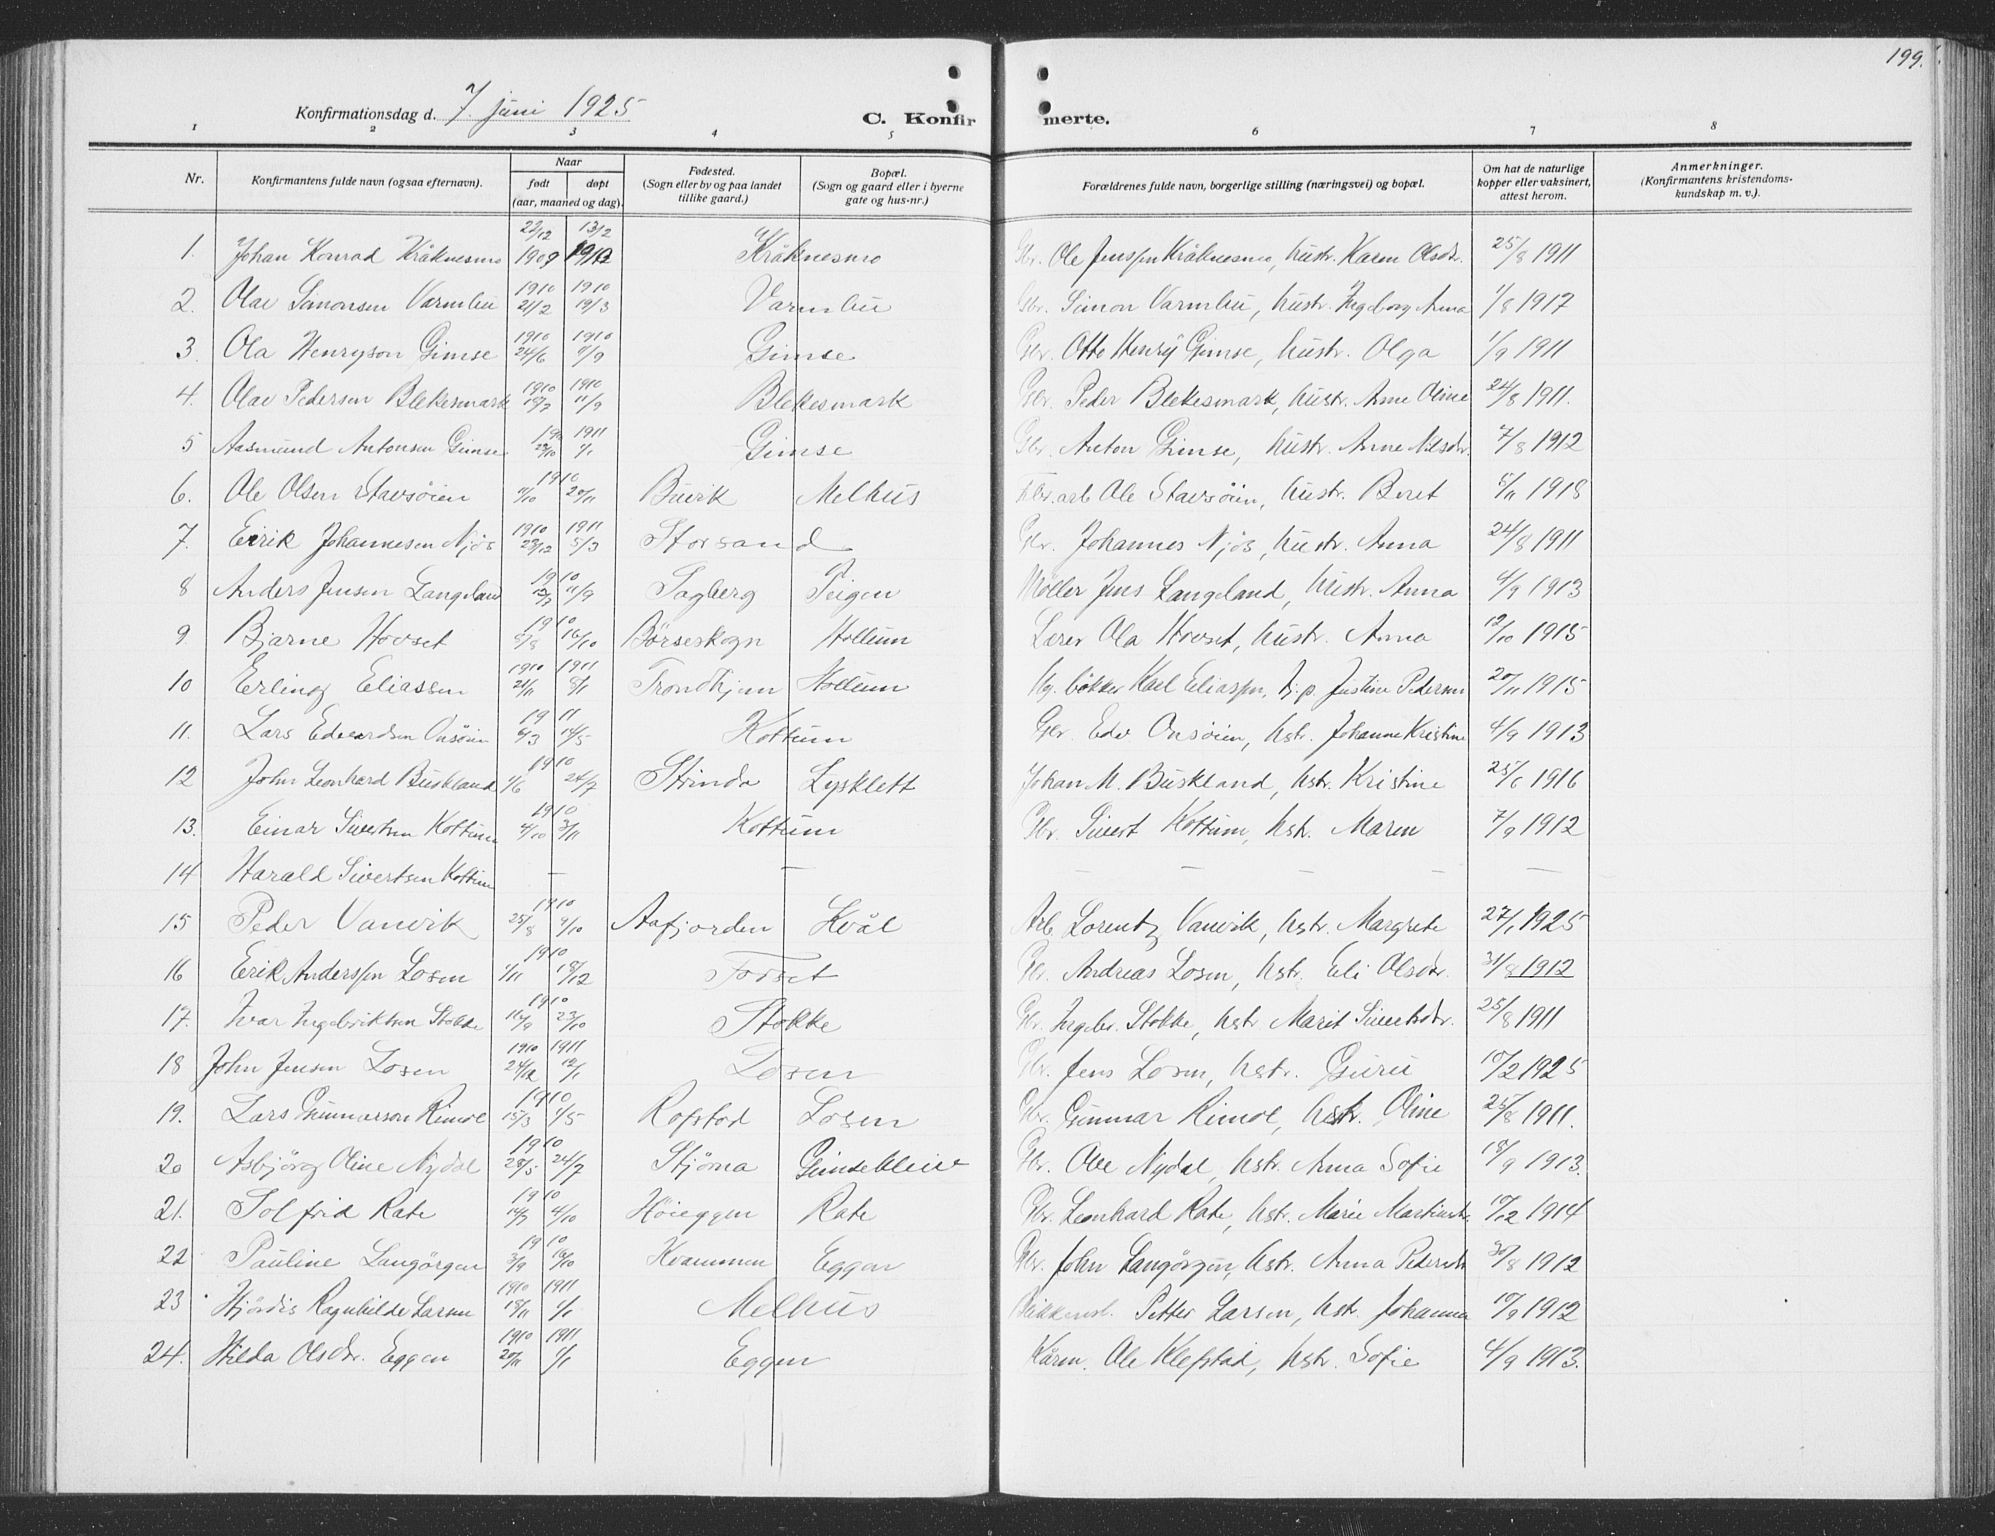 199.
Konfirmationsdag d. 7 juni 1925
C. Konfirmerte.
1 2 3 4 5 6 7 8
Nr. Konfirmantens fulde navn (ogsaa efternavn). Naar født døpt (aar, maaned og dag). Fødested. (Sogn eller by og paa landet tillike gaard.) Bopæl. (Sogn og gaard eller i byerne gate og hus-nr.) Forældrenes fulde navn, borgerlige stilling (næringsvei) og bopæl. Om hat de naturlige kopper eller vaksinert, attest herom. Anmerkninger. (Konfirmantens kristendomskundskap m. v.).
1. Johan Konrad Kråknesmo 22/12 1909 13/2 Kråknesmo Gbr. Ole Jenssen Kråknesmo, hustr. Karen Olsdr. 25/8 1911
2. Olav Simonsen Varmbu 1910 21/2 1910 19/3 Varmbu Gbr. Simon Varmbu, hustr. Ingeborg Anna 1/8 1917
3. Ola Henryson Gimse 1910 24/6 1910 /9 Gimse Gbr. Otto Henry Gimse, hustr. Olga 1/9 1911
4. Olav Pedersen Blekesmark 1910 18/7 1910 11/9 Blekesmark Gbr. Peder Blekesmark, hustr. Anne Oline 24/8 1911.
5 Aasmund Antonsen Gimse 1910 /10 1911 1/1 Gimse Gbr. Anton Gimse, hustr. Anne Nilsdr. 7/8 1912
6. Ole Olsen Stavsöien 1910 /10 20/11 Buvik Melhus arb Ole Stavsöien, hustr. Beret 5/11 1918
7. Eirik Johannesen Njös 1910 23/12 1911 5/3 Storsand Gbr. Johannes Njös, hustr. Anna 24/8 1911
8 Anders Jensen Langeland 1910 13/7 11/9 Fagberg Teigen Møller Jens Langeland, hustr. Anna 4/9 1913
9. Bjarne Hovset 1910 8/8 16/10 Börseskogn Hollum Lærer Ola Hovset, hustr. Anna 12/10 1915
10 Erling Eliassen 1910 21/11 1911 8/1 Trondhjem Hollum Ug. bøkker Karl Eliassen, h.p. Justine Pedersen 20/11 1915
11. Lars Edvardsen Onsöien 1911 6/3 14/5 Kottum Gbr. Edv Onsöien, hstr. Johanne Kristine 4/9 1913
12 John Leonhard Buskland 1910 1/6 24/7 Strinda Lysklett Johan M. Buskland, hstr. Kristine 25/6 1916
13. Einar Sivertsen Kottum 1910 4/10 /11 Kottum Gbr. Sivert Kottum, hstr. Maren 7/9 1912
14 Harald Sivertsen Kottum — — — — —
15 Peder Vanvik 1910 25/8 9/10 Aafjorden Kvål Arb Lorentz Vanvik, hstr. Margrete 27/1 1925
16 Erik Anderssen Losen 1910 1/11 18/12 Forset Gbr. Andreas Losen, hstr. Eli Olsdr. 31/8 1912
17. Ivar Ingebriktsen Stokke 1910 16/9 23/10 Stokke Gbr. Ingebr. Stokke, hstr. Marit Sivertsdr. 25/8 1911
18 John Jensen Losen 1910 24/12 1911 12/1 Losen Gbr. Jens Losen, hstr. Guru 10/2 1925
19. Lars Gunnarson Rimol 1910 15/3 1/5 Rofstad Losen Gbr. Gunnar Rimol, hstr. Oline 25/8 1911.
20 Asbjörg Oline Nydal 1910 28/5 24/7 Stjörna Gimsekleiv Gbr. Ole Nydal, hstr. Anna Sofie 18/9 1913.
21. Solfrid Rate 1910 14/7 4/10 Höieggen Rate Gbr. Leonhard Rate, hstr. Marie 10/12 1914
22 Pauline Langörgen 1910 3/9 16/10 Kvammen Eggen Gbr. John Langörgen, hstr. Anna Pedersdr 30/8 1912
23 Hjördis Ragnhilde Larsen 1910 18/11 1911 1/1 Melhus Petter Larsen, hstr. Johanna 10/9 1912
24. Hilda Olsdr. Eggen 1910 20/11 1911 1/1 Eggen Kårm. Ole Klefstad, hstr. Sofie 4/9 1913.